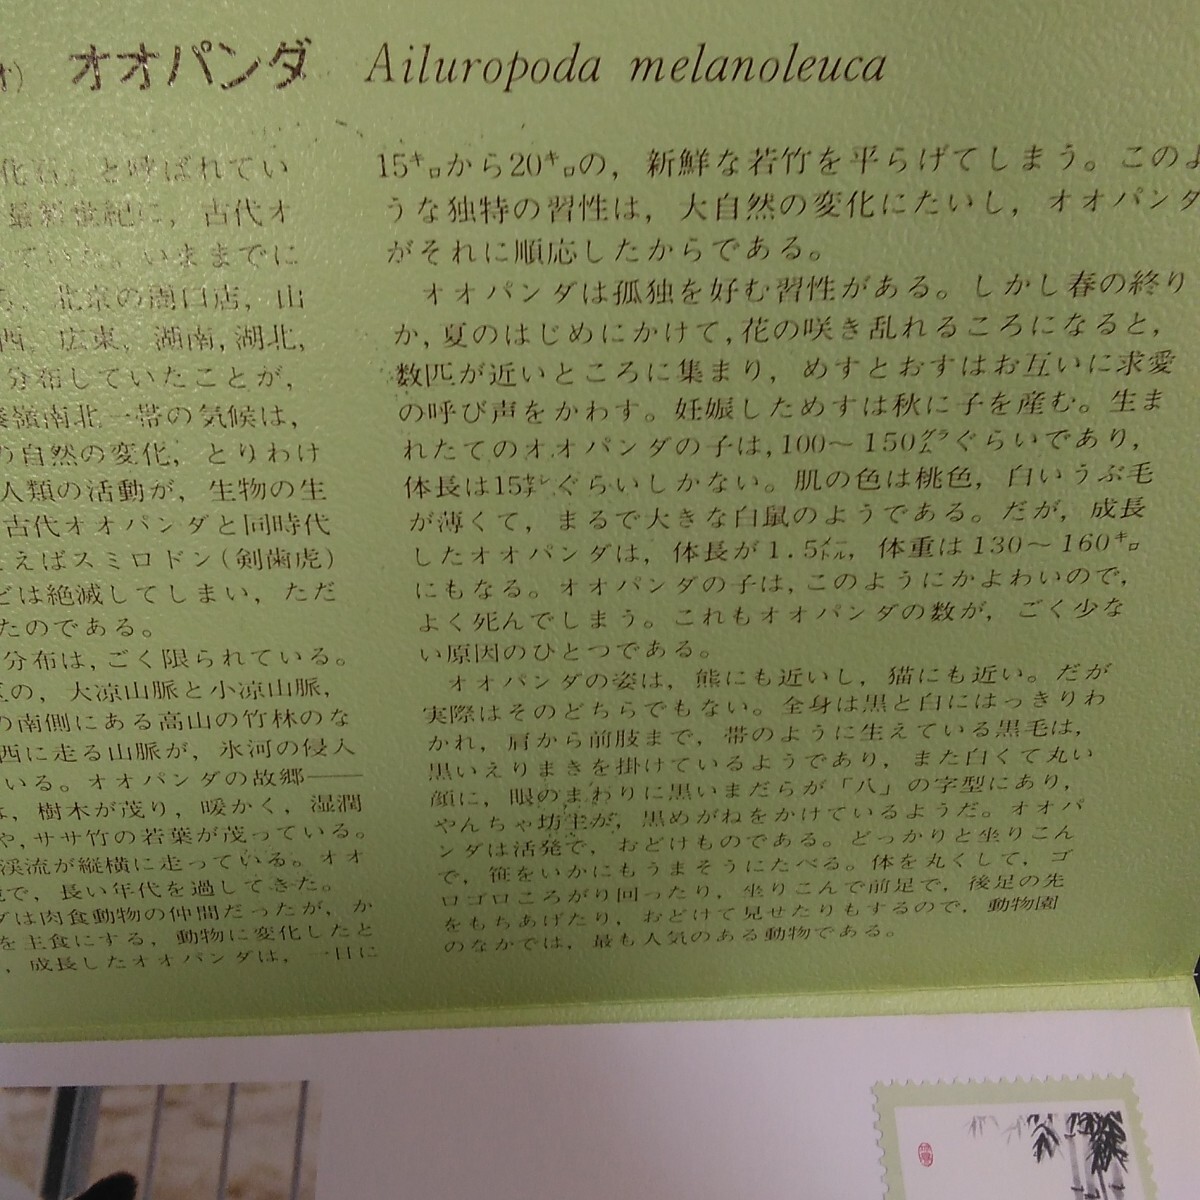 オ)　オオパンダ　Ailuropoda melanoleuca
化石』と呼ばれてい
最新世紀に，古代オ
ていた。いままでに
北京の周口店，山
西，広東，湖南，湖北，
分布していたことが，
秦嶺南北一帯の気候は，
の自然の変化，とりわけ
人類の活動が，生物の生
古代オオパンダと同時代
とえばスミロドン(剣歯虎)
どは絶滅してしまい，ただ
たのである。
分布は，ごく限られている。
の，大凉山脈と小凉山脈，
の南側にある高山の竹林のな
西に走る山脈が，氷河の侵入
いる。オオパンダの故郷――
は，樹木が茂り，暖かく，湿潤
や，ササ竹の若葉が茂っている。
渓流が縦横に走っている。オオ
で，長い年代を過してきた。
ダは肉食動物の仲間だったが，か
を主食にする，動物に変化したと
，成長したオオパンダは，一日に
15キロから20キロの，新鮮な若竹を平らげてしまう。このよ
うな独特の習性は，大自然の変化にたいし，オオパンダ
がそれに順応したからである。
オオパンダは孤独を好む習性がある。しかし春の終り
か，夏のはじめにかけて，花の咲き乱れるころになると，
数匹が近いところに集まり，めすとおすはお互いに求愛
の呼び声をかわす。妊娠しためすは秋に子を産む。生ま
れたてのオオパンダの子は，100～150グラムぐらいであり，
体長は15センチぐらいしかない。肌の色は桃色，白いうぶ毛
が薄くて，まるで大きな白鼠のようである。だが，成長
したオオパンダは，体長が1.5メートル，体重は130～160キロ
にもなる。オオパンダの子は，このようにかよわいので，
よく死んでしまう。これもオオパンダの数が，ごく少な
い原因のひとつである。
オオパンダの姿は，熊にも近いし，猫にも近い。だが
実際はそのどちらでもない。全身は黒と白にはっきりわ
かれ，肩から前肢まで，帯のように生えている黒毛は，
黒いえりまきを掛けているようであり，また白くて丸い
顔に，眼のまわりに黒いまだらが「八」の字型にあり，
やんちゃ坊主が，黒めがねをかけているようだ。オオパ
ンダは活発で，おどけものである。どっかりと坐りこん
で，笹をいかにもうまそうにたべる。体を丸くして，ゴ
ロゴロころがり回ったり，坐りこんで前足で，後足の先
をもちあげたり，おどけて見せたりもするので，動物園
のなかでは，最も人気のある動物である。